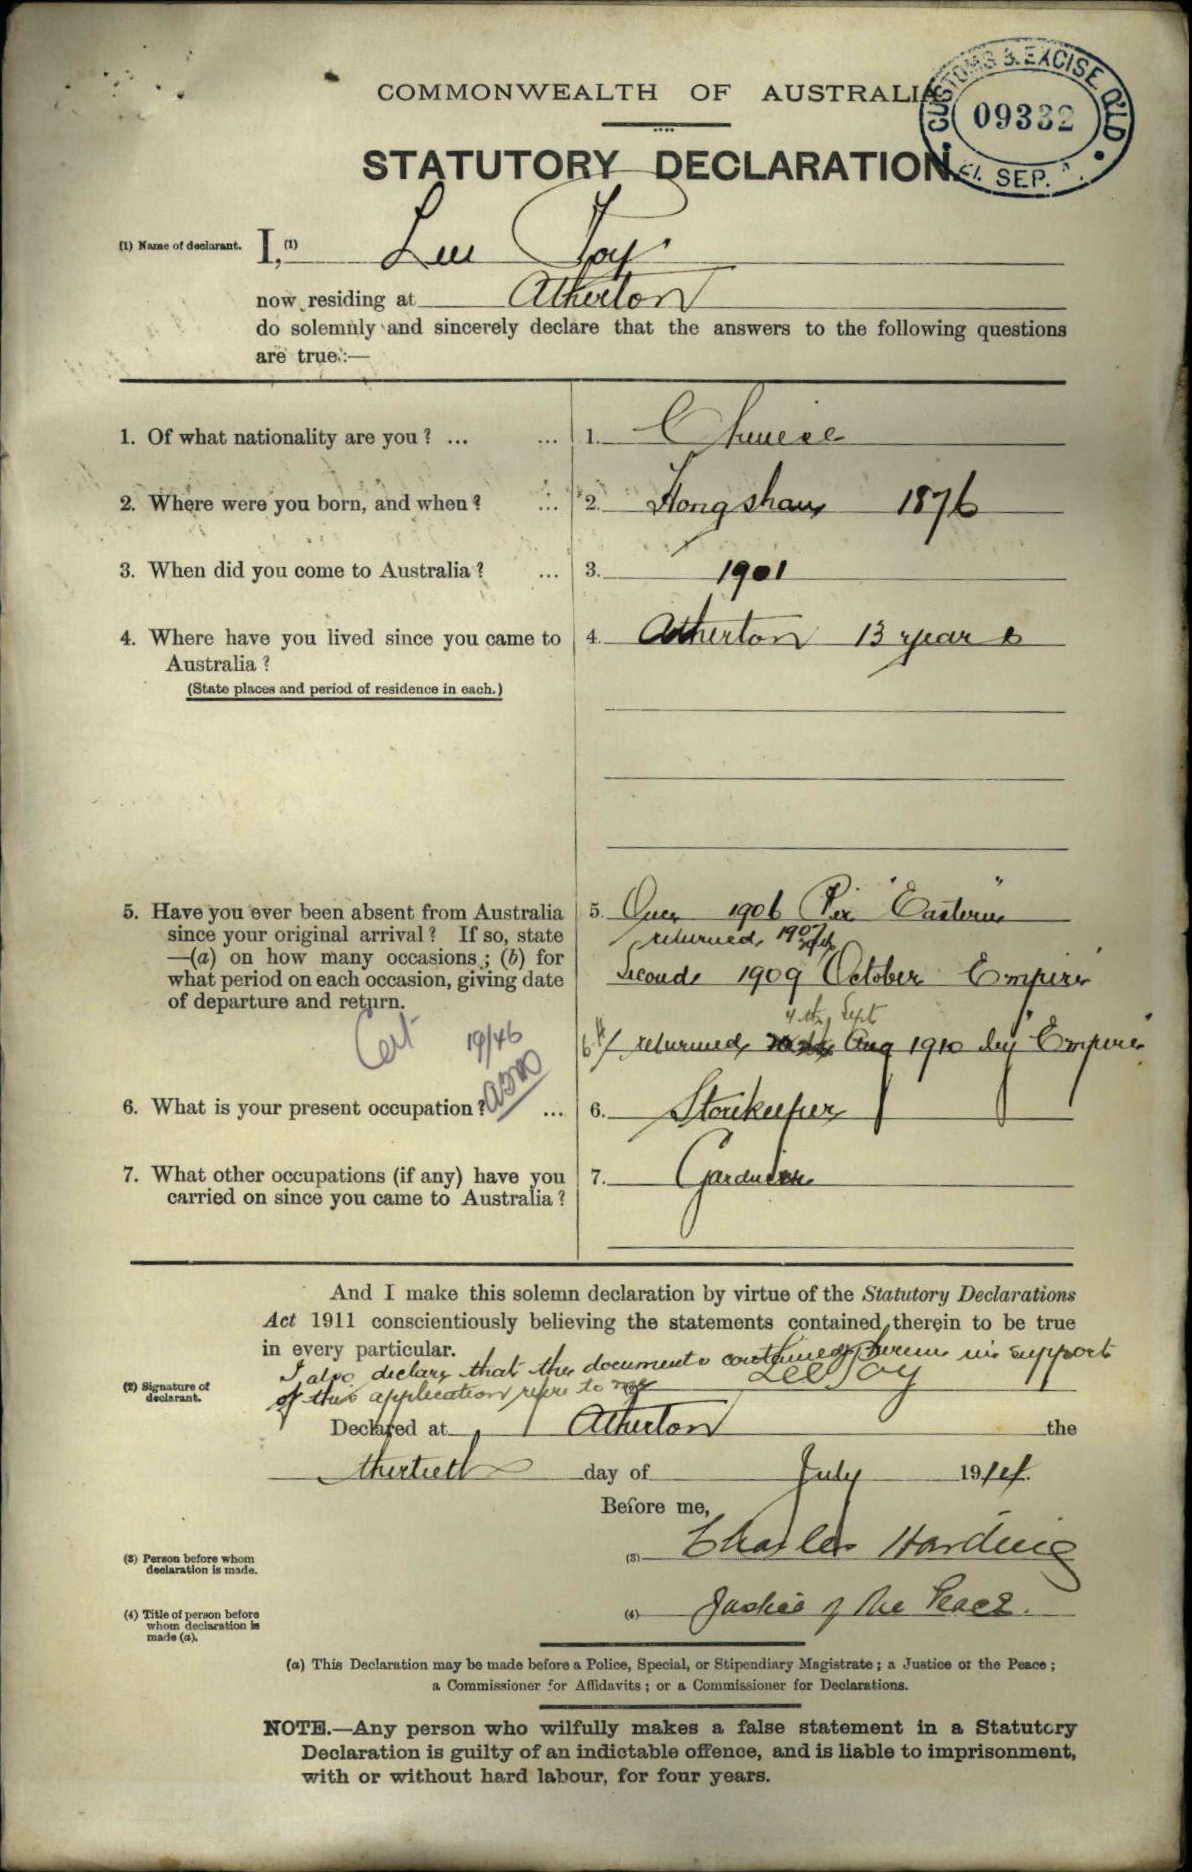 COMMONWEALTH OF AUSTRALIA
CUSTOMS & EXCISE Q'LD
09332
21. SEP.
STATUTORY DECLARATION.
(1) Name of declarant.
I, (1) Lee Joy
now residing at Atherton
do solemnly and sincerely declare that the answers to the following questions
are true:—
1. Of what nationality are you? ... ... 1. Chinese
2. Where were you born, and when? ... 2. Hongshan 1876
3. When did you come to Australia? ... 3. 1901
4. Where have you lived since you came to 4. Atherton 13 years
Australia?
(State places and period of residence in each.)
5. Have you ever been absent from Australia 5. Once 1906 Per "Eastern"
since your original arrival? If so, state returned 1907
—(a) on how many occasions; (b) for
what period on each occasion, giving date Second 1909 October Empire
of departure and return.
4th Sept
Cert 19/46
returned Aug 1910 by "Empire"
6. What is your present occupation? ... 6. Storekeeper
7. What other occupations (if any) have you 7. Gardener
carried on since you came to Australia?
And I make this solemn declaration by virtue of the Statutory Declarations
Act 1911 conscientiously believing the statements contained therein to be true
in every particular.
I also declare that the documents contained herein in support
of this application refer to me
(2) Signature of
declarant.
(2) Lee Joy
Declared at Atherton the
thirtieth day of July 1914.
Before me,
(3) Person before whom
declaration is made.
(3) Charles Harding
(4) Title of person before
whom declaration is
made (a).
(4) Justice of the Peace.
(a) This Declaration may be made before a Police, Special, or Stipendiary Magistrate; a Justice of the Peace;
a Commissioner for Affidavits; or a Commissioner for Declarations.
NOTE.—Any person who wilfully makes a false statement in a Statutory
Declaration is guilty of an indictable offence, and is liable to imprisonment,
with or without hard labour, for four years.